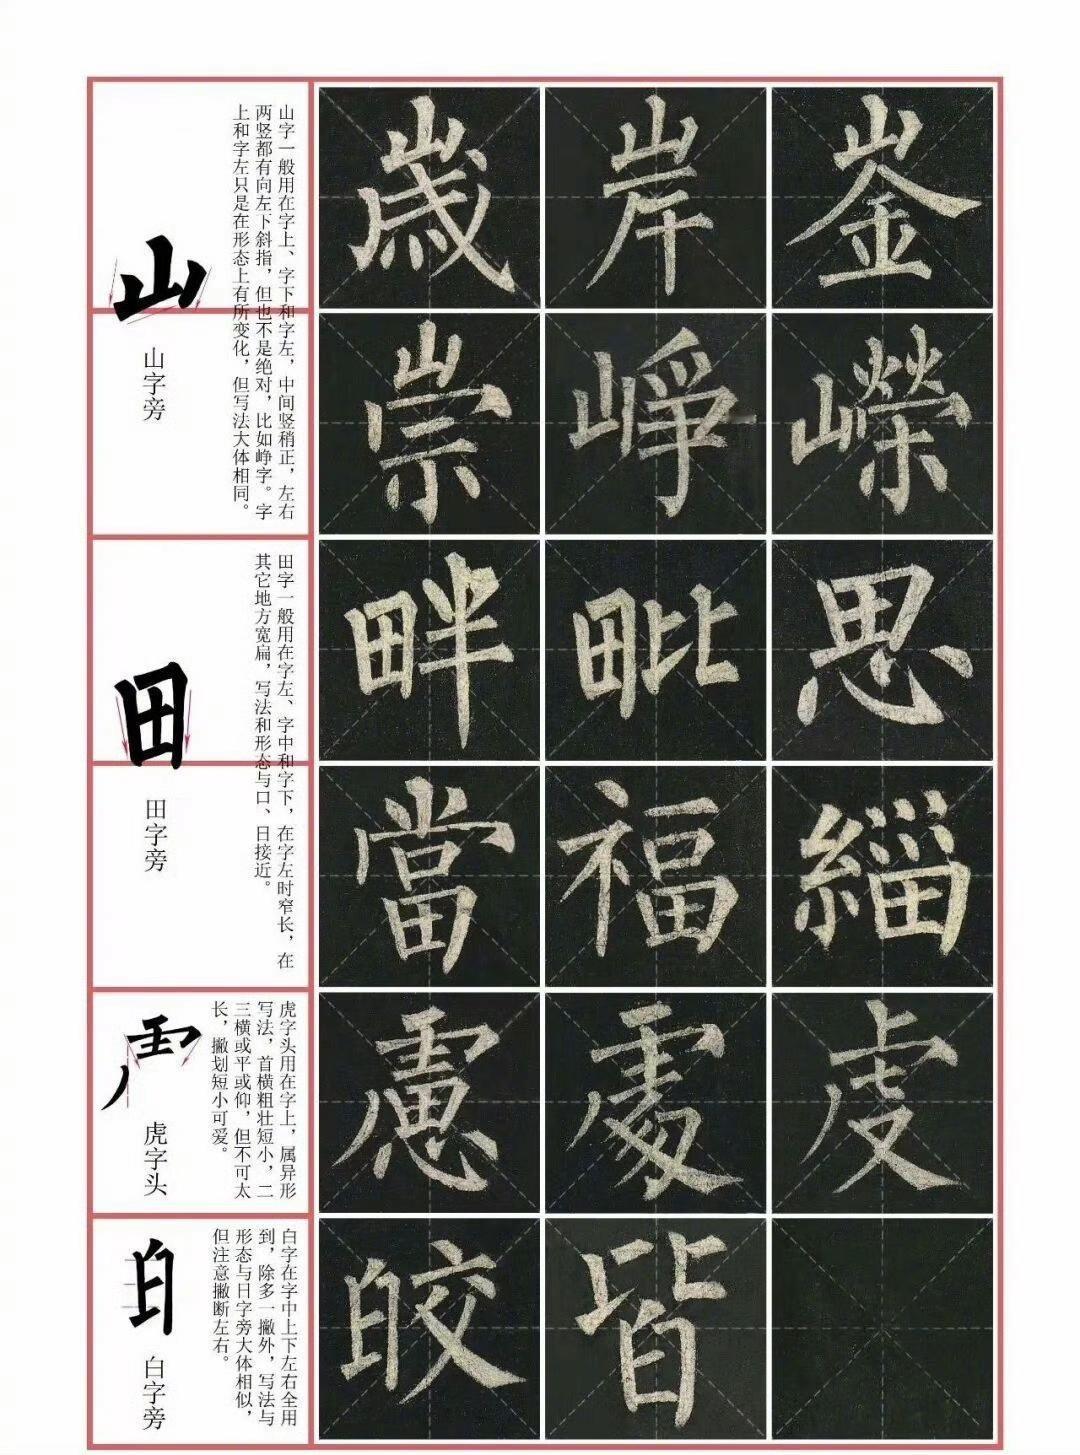 山
山字旁
山字一般用在字上、字下和字左，中间竖稍正，左右
两竖都有向左下斜指，但也不是绝对，比如峥字。字
上和字左只是在形态上有所变化，但写法大体相同。
歲 岸 崟
崇 崢 嶸
田
田字旁
田字一般用在字左、字中和字下，在字左时窄长，在
其它地方宽扁，写法和形态与口、日接近。
畔 毗 思
當 福 緇
虎字头
虎字头用在字上，属异形
写法，首横粗壮短小，二
三横或平或仰，但不可太
长，撇划短小可爱。
慮 處 虔
白
白字旁
白字在字中上下左右全用
到，除多一撇外，写法与
形态与日字旁大体相似，
但注意撇断左右。
皎 皆